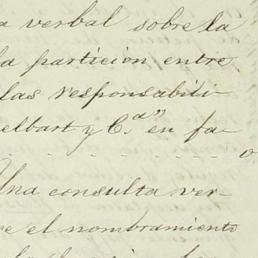 a verbal sobre la
la particion entre
las responsabili-
elbart y C.ª" en fa-
Una consulta ver-
re el nombramiento